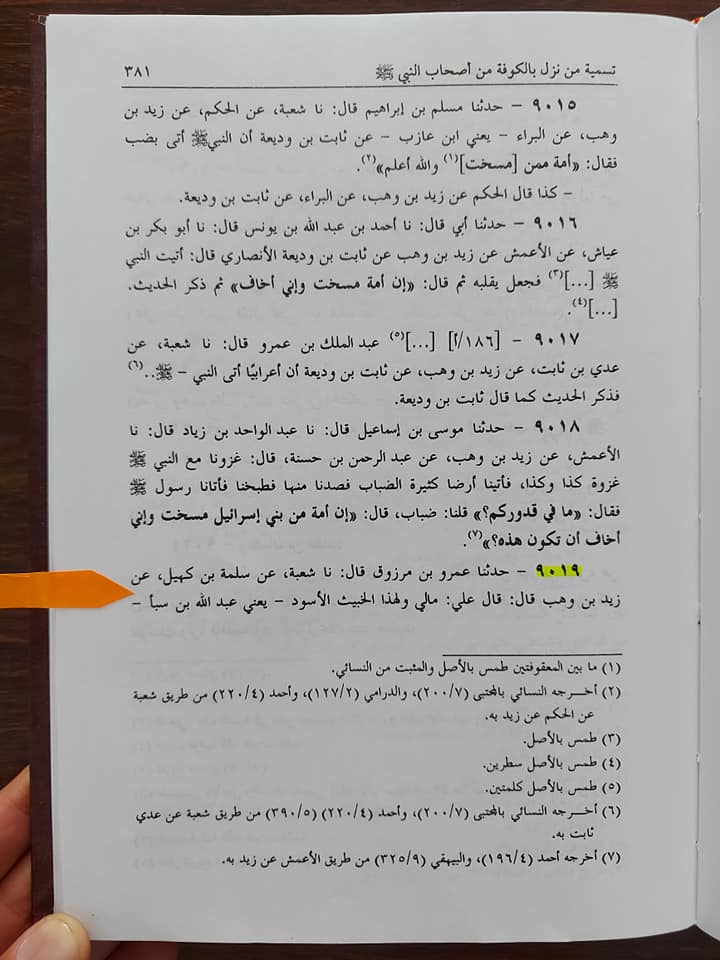 تسمية من نزل بالكوفة من أصحاب النبي ﷺ ٣٨١
٩٠١٥ – حدثنا مسلم بن إبراهيم قال: نا شعبة، عن الحكم، عن زيد بن
وهب، عن البراء – يعني ابن عازب – عن ثابت بن وديعة أن النبيﷺ أتى بضب
فقال: «أمة ممن [مسخت](١) والله أعلم»(٢).
– كذا قال الحكم عن زيد بن وهب، عن البراء، عن ثابت بن وديعة.
٩٠١٦ – حدثنا أبي قال: نا أحمد بن عبد الله بن يونس قال: نا أبو بكر بن
عياش، عن الأعمش عن زيد بن وهب عن ثابت بن وديعة الأنصاري قال: أتيت النبي
ﷺ [...](٣) فجعل يقلبه ثم قال: «إن أمة مسخت وإني أخاف» ثم ذكر الحديث.
[...](٤).
٩٠١٧ – [١٨٦/أ] [...](٥) عبد الملك بن عمرو قال: نا شعبة، عن
عدي بن ثابت، عن زيد بن وهب، عن ثابت بن وديعة أن أعرابيًا أتى النبي – ﷺ..(٦)
فذكر الحديث كما قال ثابت بن وديعة.
٩٠١٨ – حدثنا موسى بن إسماعيل قال: نا عبد الواحد بن زياد قال: نا
الأعمش، عن زيد بن وهب، عن عبد الرحمن بن حسنة، قال: غزونا مع النبي ﷺ
غزوة كذا وكذا، فأتينا أرضا كثيرة الضباب فصدنا منها فطبخنا فأتانا رسول ﷺ
فقال: «ما في قدوركم؟» قلنا: ضباب، قال: «إن أمة من بني إسرائيل مسخت وإني
أخاف أن تكون هذه؟»(٧).
٩٠١٩ – حدثنا عمرو بن مرزوق قال: نا شعبة، عن سلمة بن كهيل، عن
زيد بن وهب قال: قال علي: مالي ولهذا الخبيث الأسود – يعني عبد الله بن سبأ –
(١) ما بين المعقوفتين طمس بالأصل والمثبت من النسائي.
(٢) أخرجه النسائي بالمجتبى (٢٠٠/٧)، والدرامي (١٢٧/٢)، وأحمد (٢٢٠/٤) من طريق شعبة
عن الحكم عن زيد به.
(٣) طمس بالأصل.
(٤) طمس بالأصل سطرين.
(٥) طمس بالأصل كلمتين.
(٦) أخرجه النسائي بالمجتبى (٢٠٠/٧)، وأحمد (٢٢٠/٤) (٣٩٠/٥) من طريق شعبة عن عدي
ثابت به.
(٧) أخرجه أحمد (١٩٦/٤)، والبيهقي (٣٢٥/٩) من طريق الأعمش عن زيد به.